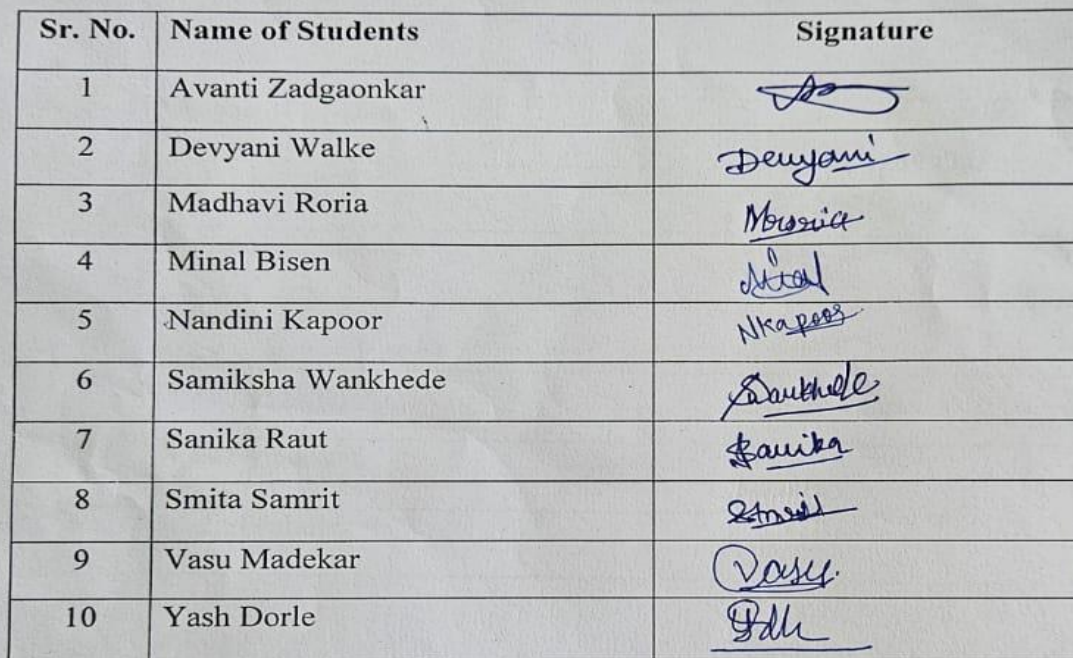 Sr. No. Name of Students Signature
1 Avanti Zadgaonkar
2 Devyani Walke Devyani
3 Madhavi Roria
4 Minal Bisen
5 Nandini Kapoor NKapoor
6 Samiksha Wankhede
7 Sanika Raut Sanika
8 Smita Samrit
9 Vasu Madekar Vasu.
10 Yash Dorle